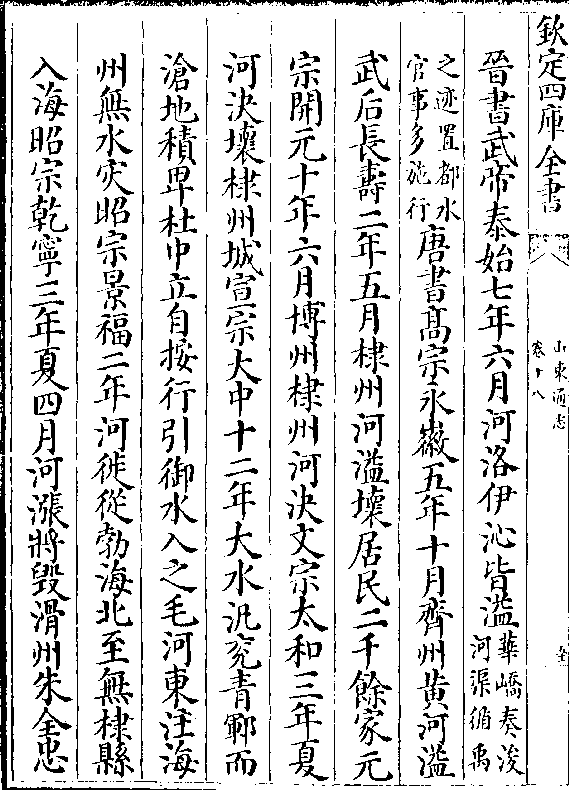 欽定四庫全書
山東通志
卷十八
晉書武帝泰始七年六月河洛伊沁皆溢華嶠奏浚
河渠循禹
之迹置都水
官事多施行唐書髙宗永徽五年十月齊州黄河溢
武后長壽二年五月棣州河溢壞居民二千餘家元
宗開元十年六月博州棣州河決文宗太和三年夏
河決壞棣州城宣宗大中十二年大水汎兖青鄆而
滄地積卑杜中立自按行引御水入之毛河東注海
州無水灾昭宗景福二年河徙從勃海北至無棣縣
入海昭宗乾寧三年夏四月河漲將毀滑州朱全忠